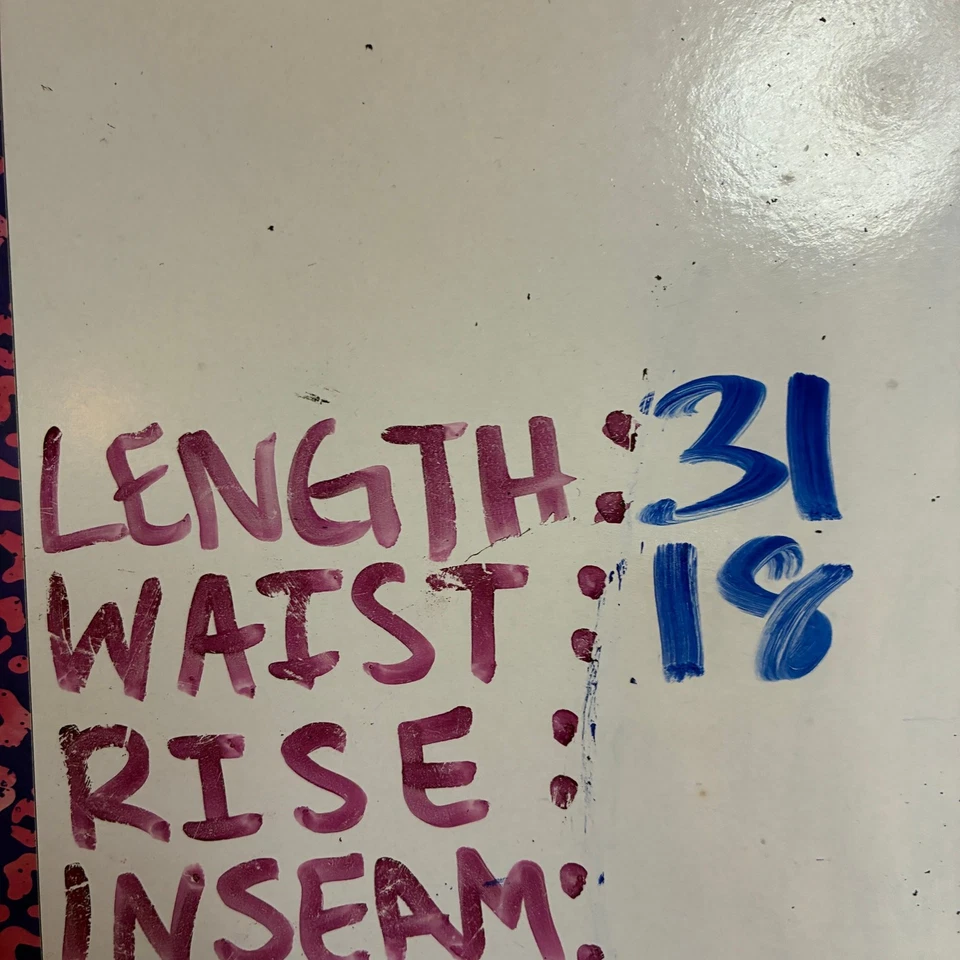 LENGTH: 31
WAIST : 18
RISE :
INSEAM: